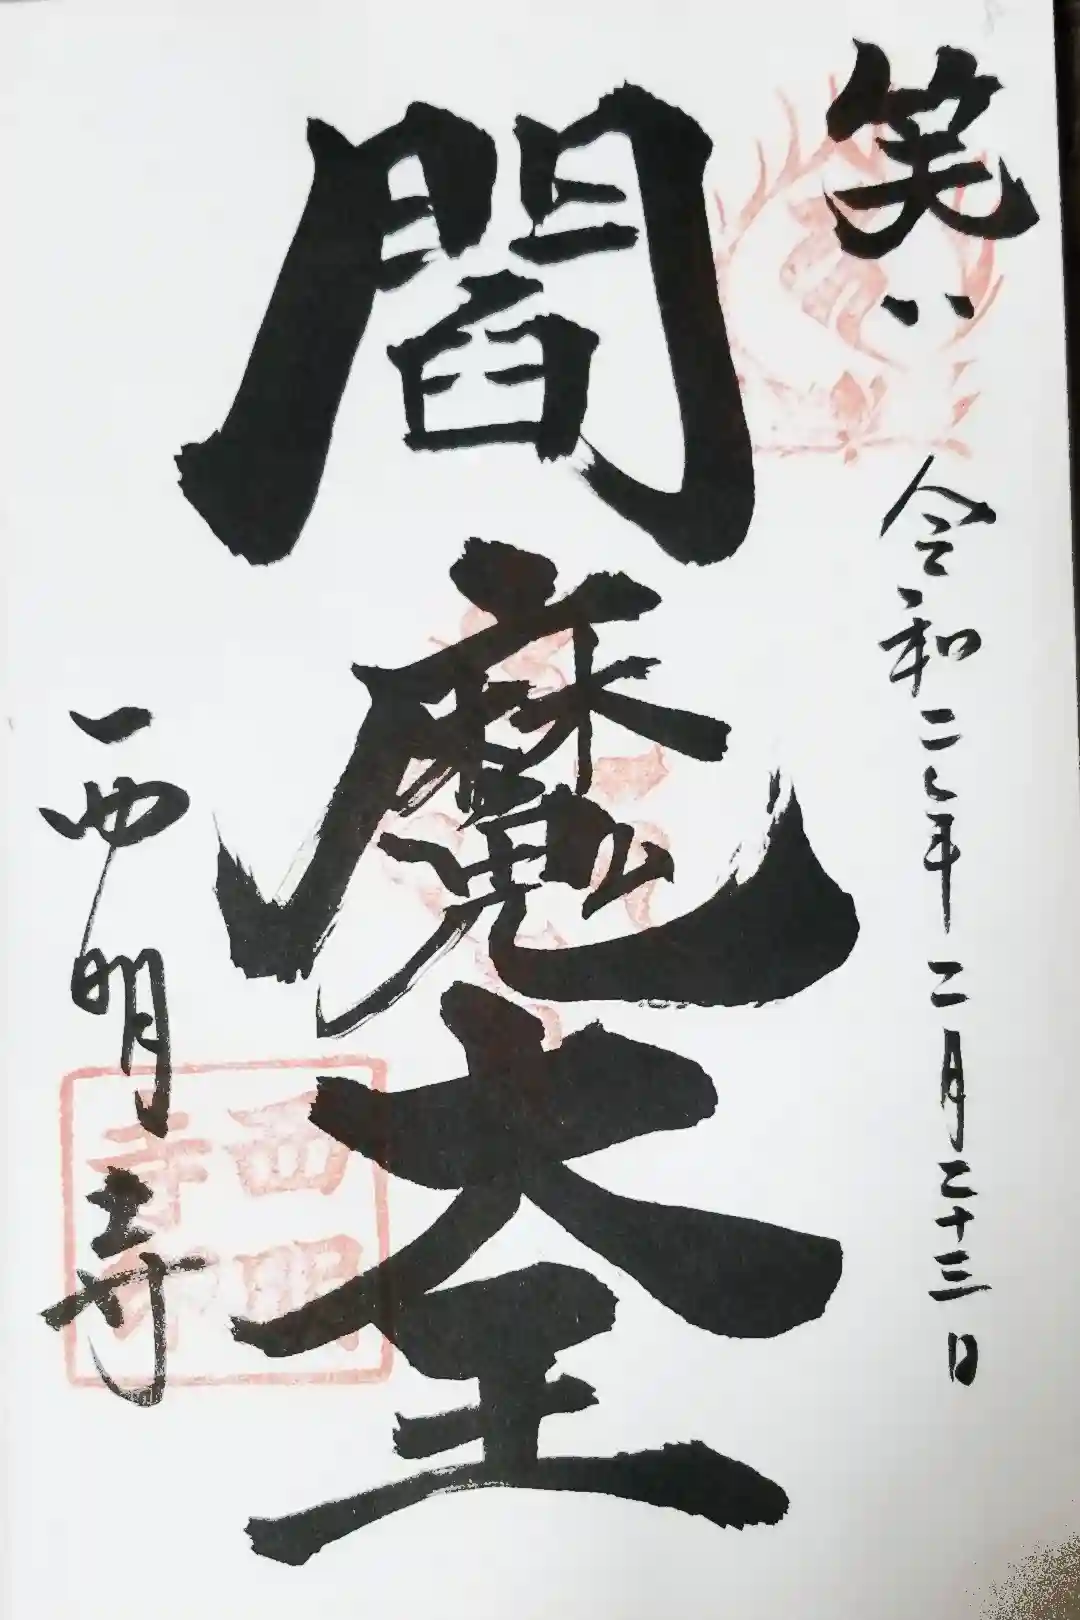 笑い
令和二年二月二十三日
閻魔大王
西明寺
西明寺印